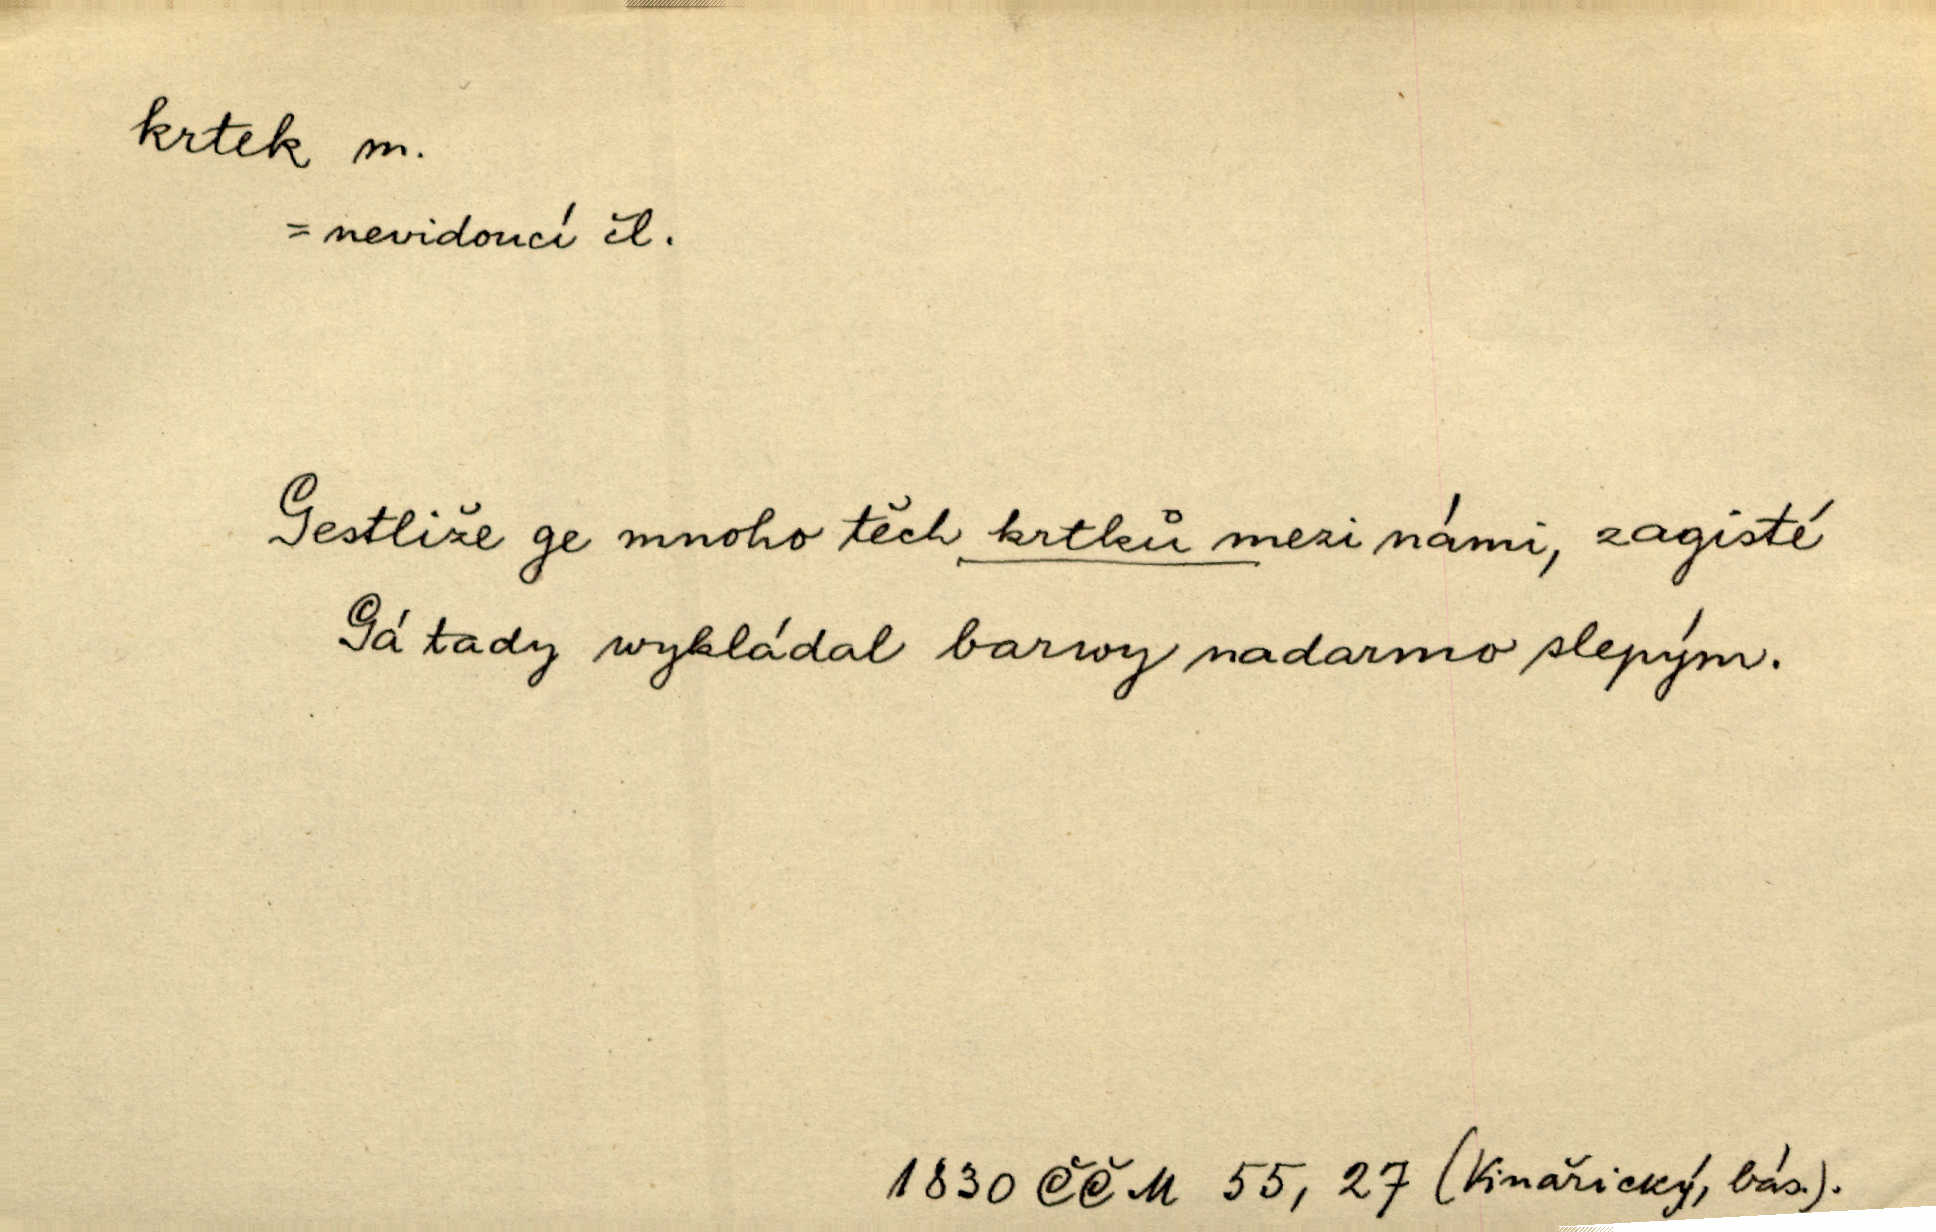 krtek m.
= nevidoucí čl.
Gestliže ge mnoho těch krtků mezi námi, zagisté
Gá tady wykládal barwy nadarmo slepým.
1830 ČČM 55, 27 (Vinařický, bás.).